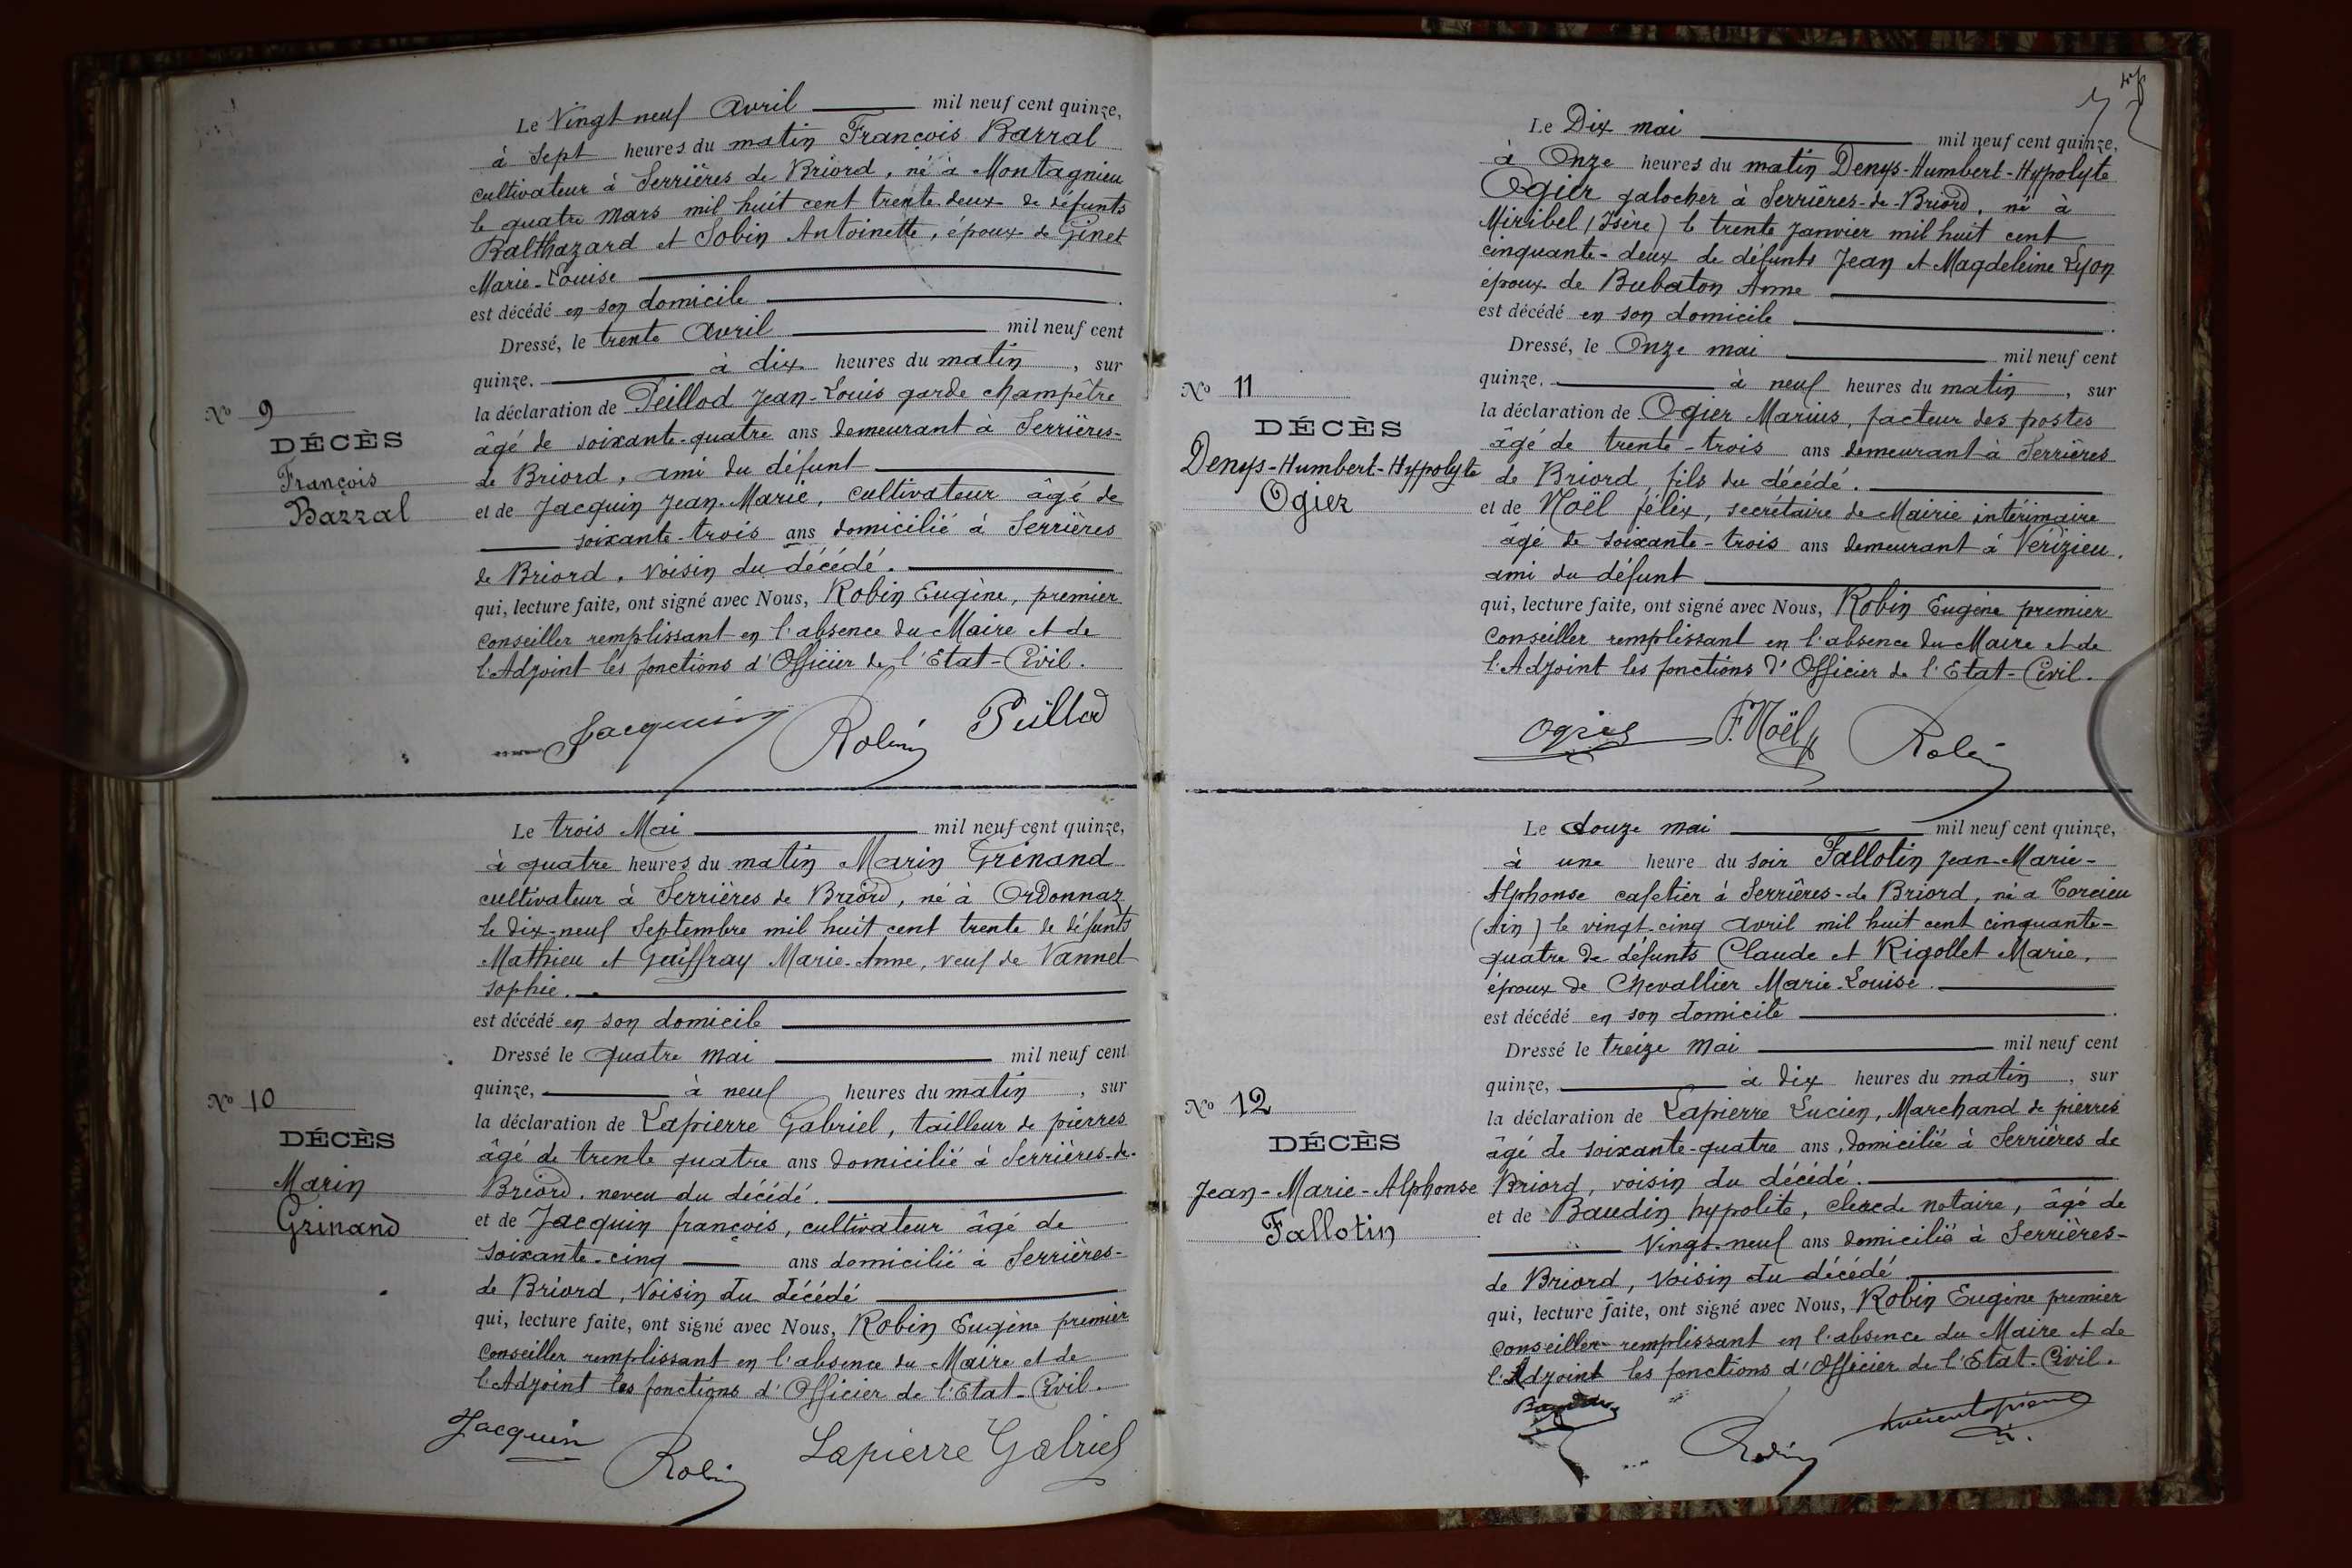 Le Vingt neuf Avril mil neuf cent quinze,
à Sept heures du matin François Barral
cultivateur à Serrières de Briord, né à Montagnieu
le quatre Mars mil huit cent trente-deux de défunts
Balthazard et Sobin Antoinette, époux de Ginet
Marie-Louise
est décédé en son domicile
Dressé, le trente Avril mil neuf cent
quinze. à dix heures du matin, sur
la déclaration de Peillod Jean-Louis garde champêtre
âgé de soixante-quatre ans demeurant à Serrières-
de Briord, ami du défunt
et de Jacquin Jean-Marie, cultivateur âgé de
soixante-trois ans domicilié à Serrières
de Briord, voisin du décédé.
qui, lecture faite, ont signé avec Nous, Robin Eugène, premier
Conseiller remplissant en l'absence du Maire et de
l'Adjoint les fonctions d'Officier de l'Etat-Civil.
Jacquin Robin Peillod
No 9
DÉCÈS
François
Barral
Le trois Mai mil neuf cent quinze,
à quatre heures du matin Marin Grinand
cultivateur à Serrières de Briord, né à Ordonnaz
le dix-neuf Septembre mil huit cent trente de défunts
Mathieu et Gaiffray Marie-Anne, veuf de Vannet
Sophie.
est décédé en son domicile
Dressé le quatre mai mil neuf cent
quinze, à neuf heures du matin, sur
la déclaration de Lapierre Gabriel, tailleur de pierres
âgé de trente quatre ans domicilié à Serrières-de-
Briord, neveu du décédé.
et de Jacquin françois, cultivateur âgé de
soixante-cinq ans domicilié à Serrières-
de Briord, Voisin du décédé
qui, lecture faite, ont signé avec Nous, Robin Eugène premier
Conseiller remplissant en l'absence du Maire et de
l'Adjoint les fonctions d'Officier de l'Etat-Civil.
Jacquin Robin Lapierre Gabriel
No 10
DÉCÈS
Marin
Grinand
Le Dix mai mil neuf cent quinze,
à Onze heures du matin Denys-Humbert-Hypolyte
Ogier galocher à Serrières-de-Briord, né à
Mirribel (Isère) le trente Janvier mil huit cent
cinquante-deux de défunts Jean et Magdeleine Lyon
époux de Bubaton Anne
est décédé en son domicile
Dressé, le Onze mai mil neuf cent
quinze. à neuf heures du matin, sur
la déclaration de Ogier Marius, facteur des postes
âgé de trente-trois ans demeurant à Serrières
de Briord, fils du décédé.
et de Noël félix, secrétaire de Mairie intérimaire
âgé de soixante-trois ans demeurant à Vérizieu.
ami du défunt
qui, lecture faite, ont signé avec Nous, Robin Eugène premier
Conseiller remplissant en l'absence du Maire et de
l'Adjoint les fonctions d'Officier de l'Etat-Civil.
Ogier F. Noël Robin
No 11
DÉCÈS
Denys-Humbert-Hypolyte
Ogier
Le douze mai mil neuf cent quinze,
à une heure du soir Fallotin Jean-Marie-
Alphonse cafetier à Serrières-de Briord, né à Torcieu
(Ain) le vingt-cinq avril mil huit cent cinquante-
quatre de défunts Claude et Rigollet Marie,
époux de Chevallier Marie-Louise.
est décédé en son domicile
Dressé le treize Mai mil neuf cent
quinze, à dix heures du matin, sur
la déclaration de Lapierre Lucien, Marchand de pierres
âgé de soixante-quatre ans, domicilié à Serrières de
Briord, voisin du décédé.
et de Baudin hypolite, clerc de notaire, âgé de
Vingt-neuf ans domicilié à Serrières-
de Briord, Voisin du décédé
qui, lecture faite, ont signé avec Nous, Robin Eugène premier
Conseiller remplissant en l'absence du Maire et de
l'Adjoint les fonctions d'Officier de l'Etat-Civil.
Baudin Robin Lucien Lapierre
No 12
DÉCÈS
Jean-Marie-Alphonse
Fallotin